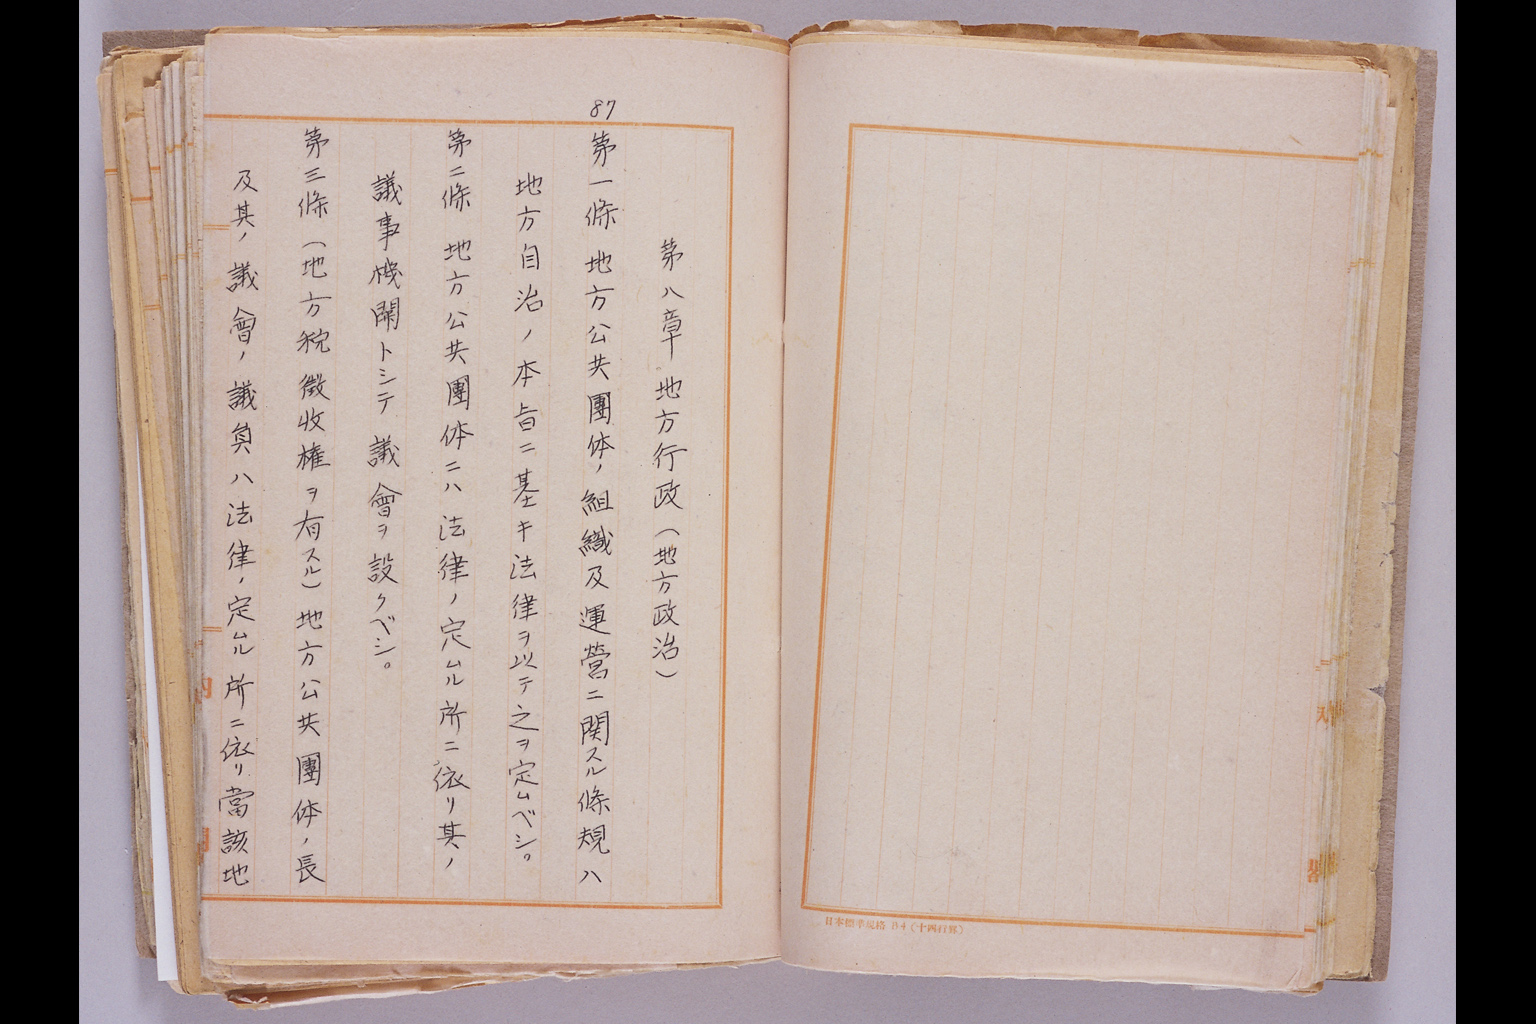 87
第八章 地方行政（地方政治）
第一條 地方公共團体ノ組織及運営ニ関スル條規ハ
地方自治ノ本旨ニ基キ法律ヲ以テ之ヲ定ムベシ。
第二條 地方公共團体ニハ法律ノ定ムル所ニ依リ其ノ
議事機関トシテ議會ヲ設クベシ。
第三條（地方税徴收権ヲ有スル）地方公共團体ノ長
及其ノ議會ノ議員ハ法律ノ定ムル所ニ依リ當該地
日本標準規格 B4（十四行罫）